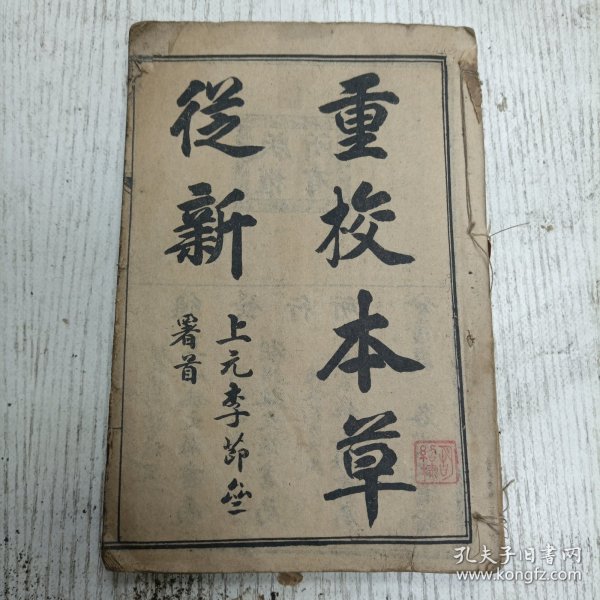 重校本草
從新
上元李節
署首
孔夫子旧书网
www.kongfz.com